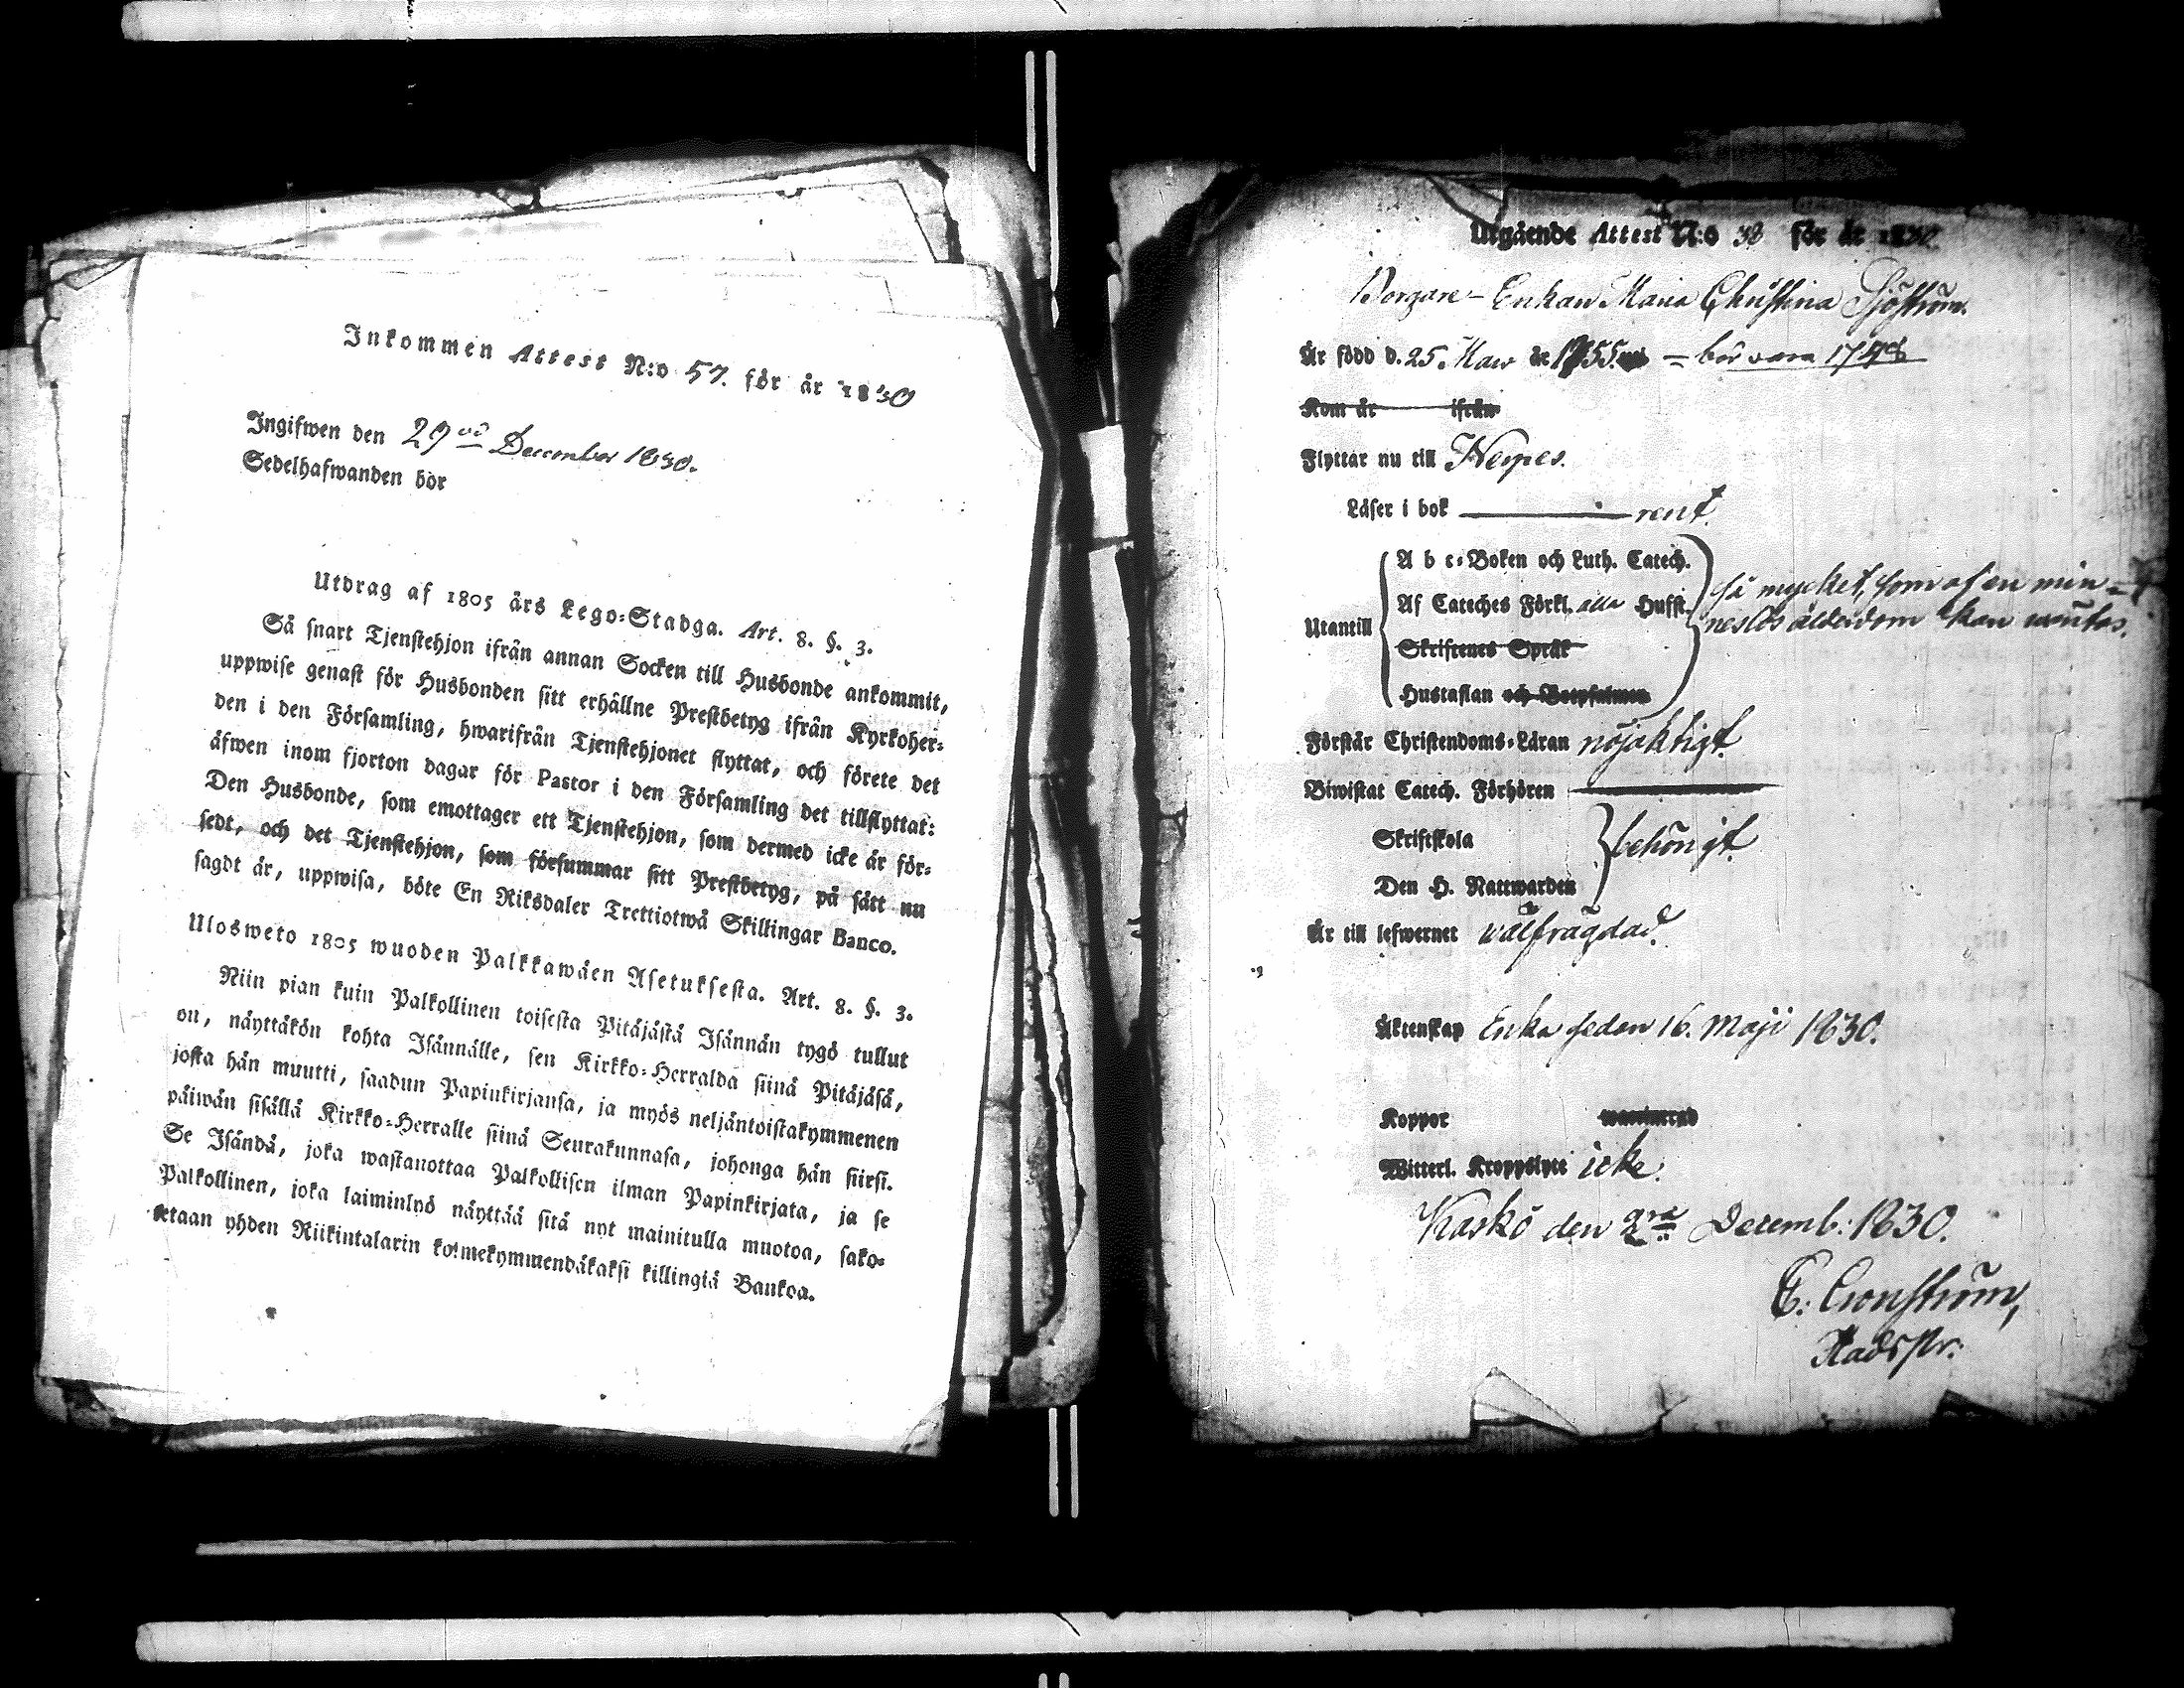 Inkommen Attest N:o 57. för år 1830
Ingifwen den 29de December 1830.
Sedelhafwanden bör
Utdrag af 1805 års Lego-Stadga. Art. 8. §. 3.
Så snart Tjenstehjon ifrån annan Socken till Husbonde ankommit,
uppwise genast för Husbonden sitt erhållne Prestbetyg ifrån Kyrkoher-
den i den Församling, hwarifrån Tjenstehjonet flyttat, och förete det
äfwen inom fjorton dagar för Pastor i den Församling det tillflyttat:
Den Husbonde, som emottager ett Tjenstehjon, som dermed icke är för-
sedt, och det Tjenstehjon, som försummar sitt Prestbetyg, på sätt nu
sagdt är, uppwisa, böte En Riksdaler Trettiotwå Skillingar Banco.
Ulosweto 1805 wuoden Palkkawäen Asetuksesta. Art. 8. §. 3.
Niin pian kuin Palkollinen toisesta Pitäjästä Isännän tygö tullut
on, näyttäkön kohta Isännälle, sen Kirkko-Herralda siinä Pitäjäsä,
josta hän muutti, saadun Papinkirjansa, ja myös neljäntoistakymmenen
päiwän sisällä Kirkko-Herralle siinä Seurakunnasa, johonga hän siirsi.
Se Isändä, joka wastanottaa Palkollisen ilman Papinkirjata, ja se
Palkollinen, joka laiminlyö näyttää sitä nyt mainitulla muotoa, sako-
tetaan yhden Riikintalarin kolmekymmendäkaksi killingiä Bankoa.
Utgående Attest N:o 38 för år 1830
Borgare-Enkan Maria Christina Sjöström.
Är född d. 25. Mars år 1755 = bör vara 17
Kom år ifrån
Flyttar nu till Nerpes.
Läser i bok rent.
Utantill
A b c-Boken och Luth. Catech.
Af Cateches Förkl. alla Hufst.
Skriftenes Språk
Hustaflan och Botpsalmen
så mycket, som af en min-
neslös ålderdom kan väntas.
Förstår Christendoms-Läran nöjaktigt
Biwistat Catech. Förhören
Skriftskola
Den H. Nattwarden
behörigt.
Är till lefwernet välfrägdad.
Äktenskap Enka sedan 16. Maji 1830.
Koppor waccinerad
Witterl. Kroppslyte icke.
Kaskö den 2ra Decemb: 1830.
E: Cronström,
Radspr.